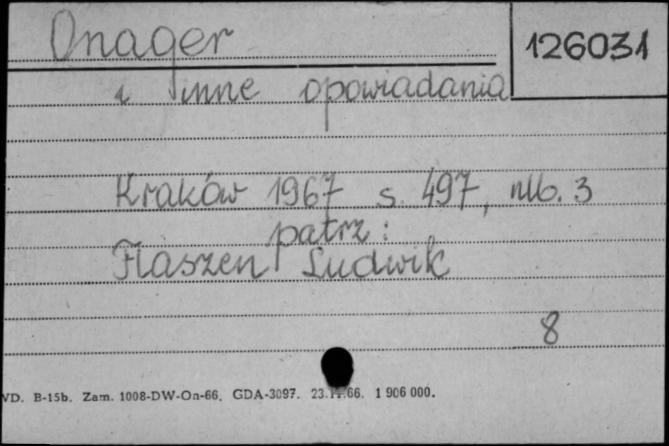 Onager
126031
i inne opowiadania
Kraków 1967 s. 497, nlb. 3
patrz:
Flaszen Ludwik
8
VD. B-15b. Zam. 1008-DW-On-66. GDA-3097. 23. .66. 1 906 000.